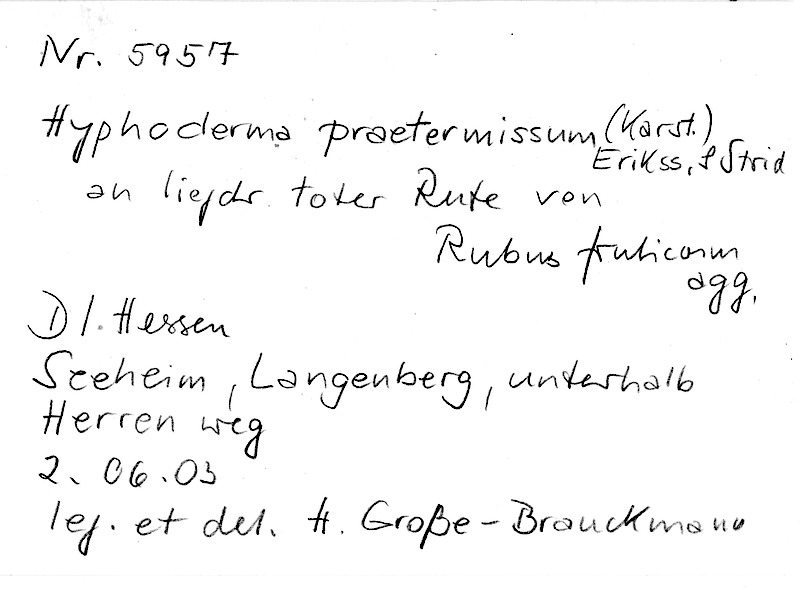 Nr. 5957
Hyphoderma praetermissum (Karst.)
Erikss. & Strid
an liegdr. toter Rute von
Rubus fruticosum
agg.
D / . Hessen
Seeheim, Langenberg, unterhalb
Herrenweg
2. 06.03
leg. et det. H. Große-Brauckmann